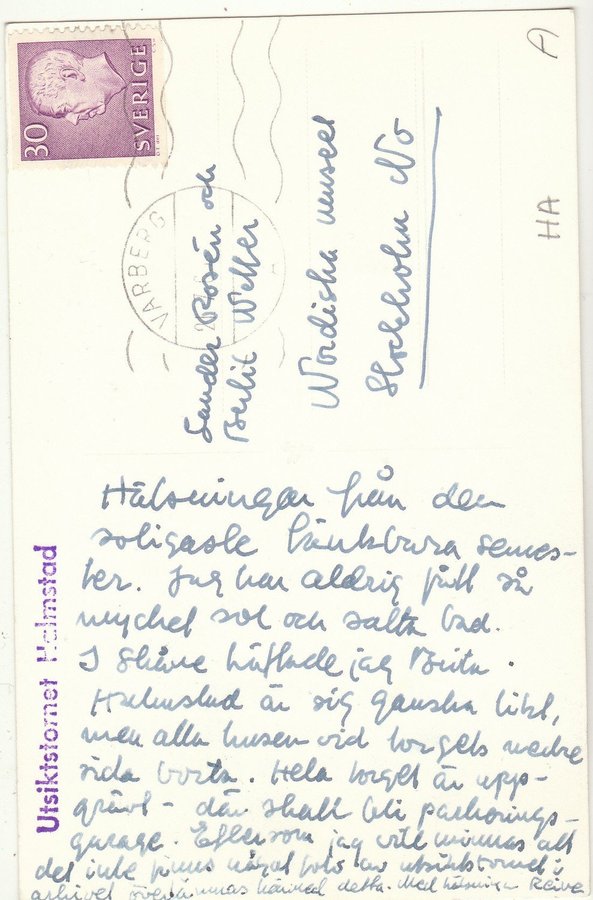 30
SVERIGE
VARBERG
A
HA
Sander Rosén och
Berlit Weller
Nordiska museet
Stockholm No
Utsiktstornet Halmstad
Hälsningar från den
soligaste tänkbara semes-
ter. Jag har aldrig fått så
mycket sol och salta bad.
I Skåne träffade jag Brita.
Halmstad är sig ganska likt,
men alla husen vid torgets nedre
sida borta. Hela torget är upp-
grävt - där skall bli parkerings-
garage. Eftersom jag vill minnas att
det inte finns något foto av utsiktstornet i
arkivet överlämnas härmed detta. Med hälsningar